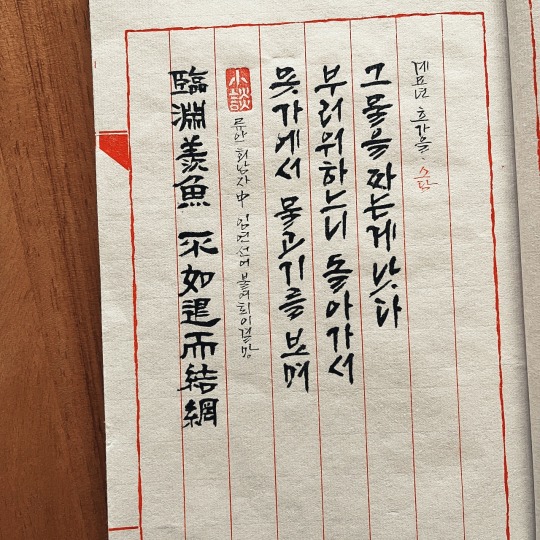 臨淵羨魚 不如退而結網
小談
류안 회남자 中 임연선어 불여퇴이결망
못가에서 물고기를 보며
부러워하느니 돌아가서
그물을 짜는게 낫다
계묘년 초가을. 소담